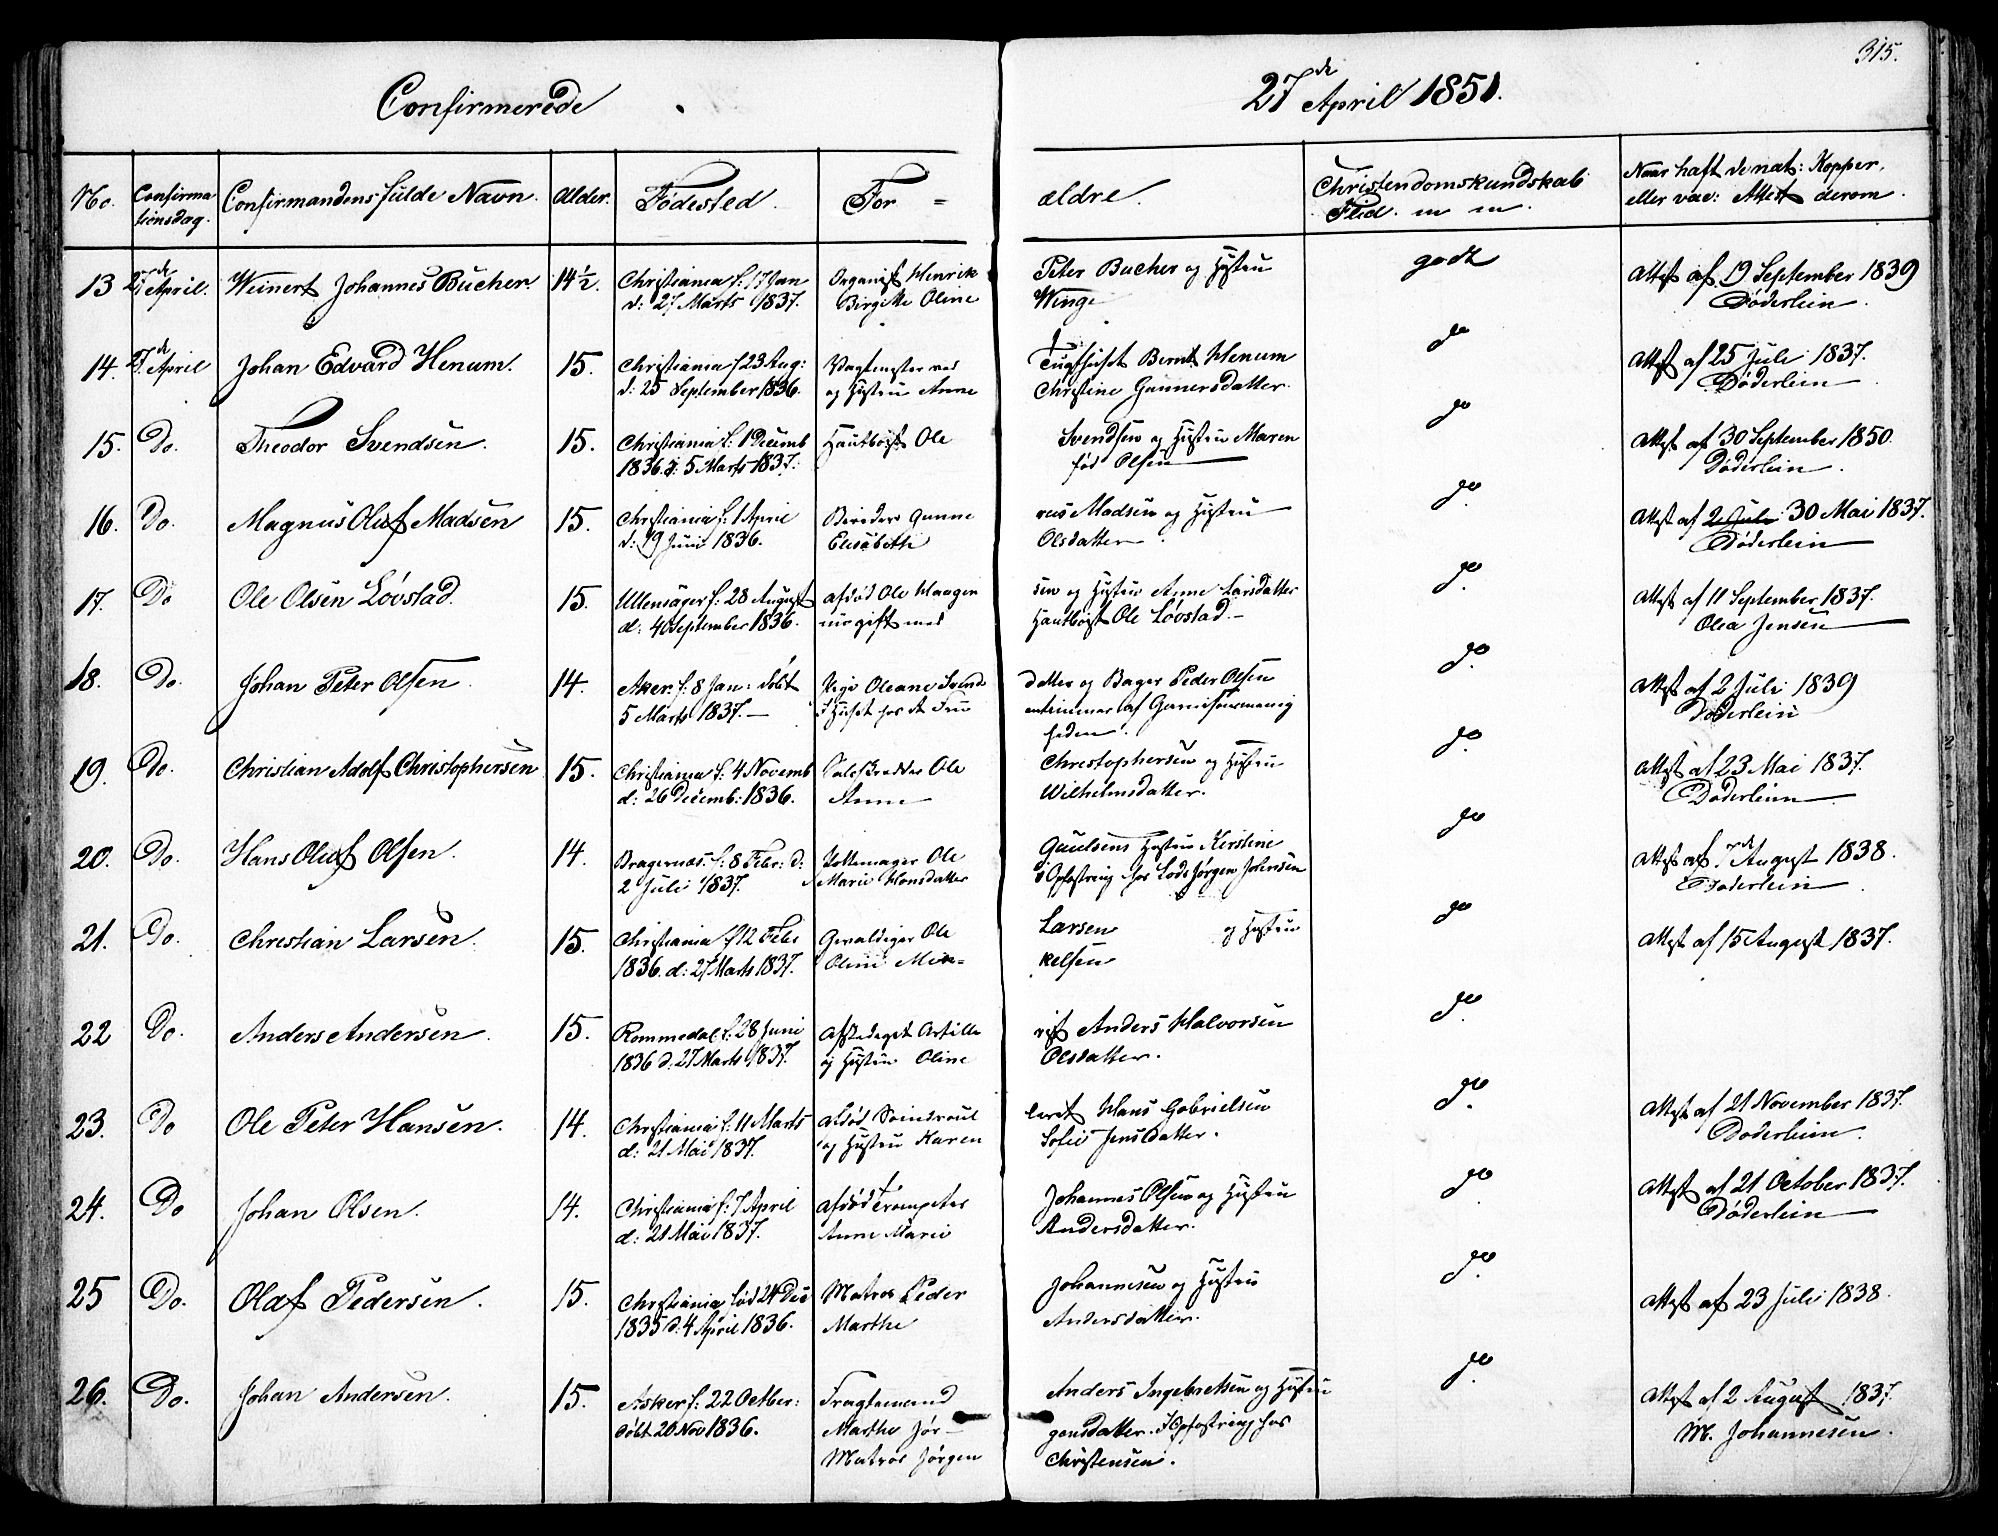 315.
Confirmerede 27de April 1851.
No. Confirmationsdag. Confirmandens fulde Navn. Alder. Fødested. For = ældre. Christendomskundskab Flid. m m. Naar haft de nat: Kopper, eller vac: Attest derom.
13 27de April. Weinert Johannes Bucher 14½. Christiania f: 17 Jan Organist Henrik Peter Bucher og Hustru godt Attest af 19 September 1839
d: 27 Marts 1837. Birgitte Oline Winge Døderlein.
14. 27de April Johan Edvard Henum. 15. Christiania f 23 Aug: Vagtmester ved Tugthuset Bernt Henum do Attest af 25 Juli 1837.
d: 25 September 1836. og Hustru Anne Christine Gunnersdatter. Døderlein
15. Do. Theodor Svendsen. 15. Christiania f: 1 Decemb Hautboist Ole Svendsen og Hustru Maren do Attest af 30 September 1850.
1836. d: 5 Marts 1837. født Olsen Døderlein.
16. Do. Magnus Oluf Madsen 15. Christiania f: 1 April Gunne rus Madsen og Hustru do. Attest af 2 Juli 30 Mai 1837.
d: 19 Juni 1836. Elisabeth Olsdatter. Døderlein
17. Do Ole Olsen Løvstad. 15. Ullensager f: 28 August afdød Ole Haagen sen og Hustru Anne Larsdatter do. Attest af 11 September 1837.
d: 4 September 1836. nu gift med Hautboist Ole Løvstad. Olea Jensen
18. Do. Johan Peter Olsen. 14. Aker f: 8 Jan: døbt Pige Oleane Svends datter og Bager Peder Olsen do. Attest af 2 Juli 1839
5 Marts 1837. I Huset hos af Garnisonsmenig heden. Døderlein
19. Do. Christian Adolf Christophersen 15. Christiania f: 4 Novemb Ole Christophersen og Hustru do. Attest af 23 Mai 1837.
d: 26 Decemb: 1836. Anne Wilhelmsdatter. Døderlein
20. Do. Hans Oluf Olsen. 14. Bragernæs. f: 8 Febr: d: Ole Hustru Kirstine do Attest af 7de August 1838.
2 Juli 1837. Marie Hansdatter i Opfostring hos Lods Jørgen Johnsen Døderlein
21. Do. Christian Larsen. 15. Christiania f 12 Febr Gevaldiger Ole Larsen og Hustru do Attest af 15 August 1837.
1836. d: 27 Marts 1837. Oline Mik= kelsen
22 Do. Anders Andersen. 15. Rommedal f: 28 Juni Afskediget Artille rist Anders Halvorsen do.
1836 d: 27 Marts 1837. og Hustru Oline Olsdatter.
23. Do Ole Peter Hansen. 14. Christiania f: 11 Marts afdød Hans Gabrielsen do. Attest af 21 November 1837.
d: 21 Mai 1837. og Hustru Karen Sofie Jensdatter. Døderlein.
24. Do Johan Olsen. 14. Christiania f: 7 April afdød Trompeter Johannes Olsen og Hustru do. Attest af 21 October 1837.
d: 21 Mai 1837. Anne Marie Andersdatter. Døderlein
25 Do. Olaf Pedersen. 15. Christiania født 24 Dec Matros Peder Johannesen og Hustru do. Attest af 23 Juli 1838.
1835 d. 4 April 1836. Marthe Andersdatter.
26. Do. Johan Andersen. 15. Asker f: 22 October: Fragtemand Anders Ingebretsen og Hustru do. Attest af 2 August 1837.
døbt 20 Nov 1836. Marthe Jør- gensdatter. I Opfostring hos M. Johannesen.
Matros Jørgen Christensen.